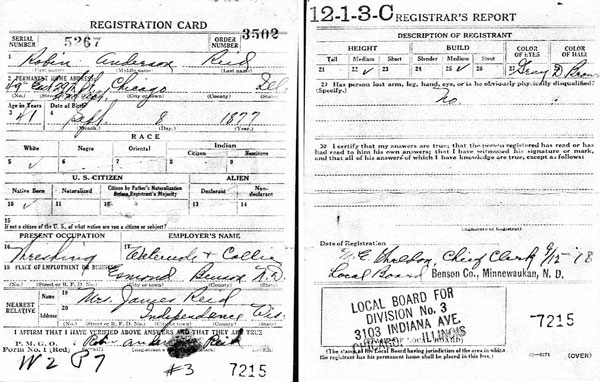 REGISTRATION CARD
SERIAL NUMBER 5267 ORDER NUMBER 3502
1 Robin Anderson Reid
(First name) (Middle name) (Last name)
2 PERMANENT HOME ADDRESS:
Chicago Ill.
(No.) (Street or R. F. D. No.) (City or town) (County) (State)
Age in Years Date of Birth
3 41 4 Sept 8 1877
(Month.) (Day.) (Year.)
RACE
White Negro Oriental Indian
Citizen Noncitizen
5 ✓ 6 7 8 9
U. S. CITIZEN ALIEN
Native Born Naturalized Citizen by Father's Naturalization Before Registrant's Majority Declarant Non-declarant
10 ✓ 11 12 13 14
15
If not a citizen of the U. S., of what nation are you a citizen or subject?
PRESENT OCCUPATION EMPLOYER'S NAME
16 Threshing 17
18 PLACE OF EMPLOYMENT OR BUSINESS:
Esmond Benson N.D.
(No.) (Street or R. F. D. No.) (City or town) (County) (State)
NEAREST RELATIVE Name 19 Mrs. James Reid
Address 20 Independence Wis.
(No.) (Street or R. F. D. No.) (City or town) (County) (State)
I AFFIRM THAT I HAVE VERIFIED ABOVE ANSWERS AND THAT THEY ARE TRUE
P. M. G. O.
Form No. 1 (Red)
Reid
W 287 #3 7215
12-1-3-C REGISTRAR'S REPORT
DESCRIPTION OF REGISTRANT
HEIGHT BUILD COLOR OF EYES COLOR OF HAIR
Tall Medium Short Slender Medium Stout
21 22 ✓ 23 24 25 ✓ 26 27 Grey D Brown
29 Has person lost arm, leg, hand, eye, or is he obviously physically disqualified?
(Specify.)
No.
30 I certify that my answers are true; that the person registered has read or has
had read to him his own answers; that I have witnessed his signature or mark,
and that all of his answers of which I have knowledge are true, except as follows:
(Signature of Registrar)
Date of Registration
Sheldon, Chief Clerk 9/15 '18
Local Board Benson Co., Minnewaukan, N. D.
LOCAL BOARD FOR
DIVISION No. 3
3103 INDIANA AVE.
CHICAGO, ILLINOIS
7215
(STAMP OF LOCAL BOARD)
(The stamp of the Local Board having jurisdiction of the area in which
the registrant has his permanent home shall be placed in this box.)
(OVER)